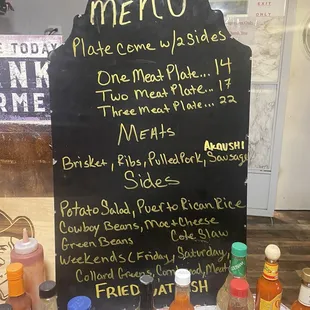 MENU
Plate come w/2 sides
One Meat Plate... 14
Two Meat Plate... 17
Three Meat Plate... 22
Meats
Akaushi
Brisket, Ribs, Pulled Pork, Sausage
Sides
Potato Salad, Puerto Rican Rice
Cowboy Beans, Mac & Cheese
Green Beans Cole Slaw
Weekends (Friday, Saturday,
Collard Greens, Corn
FRIED
E TODAY
NK
RME